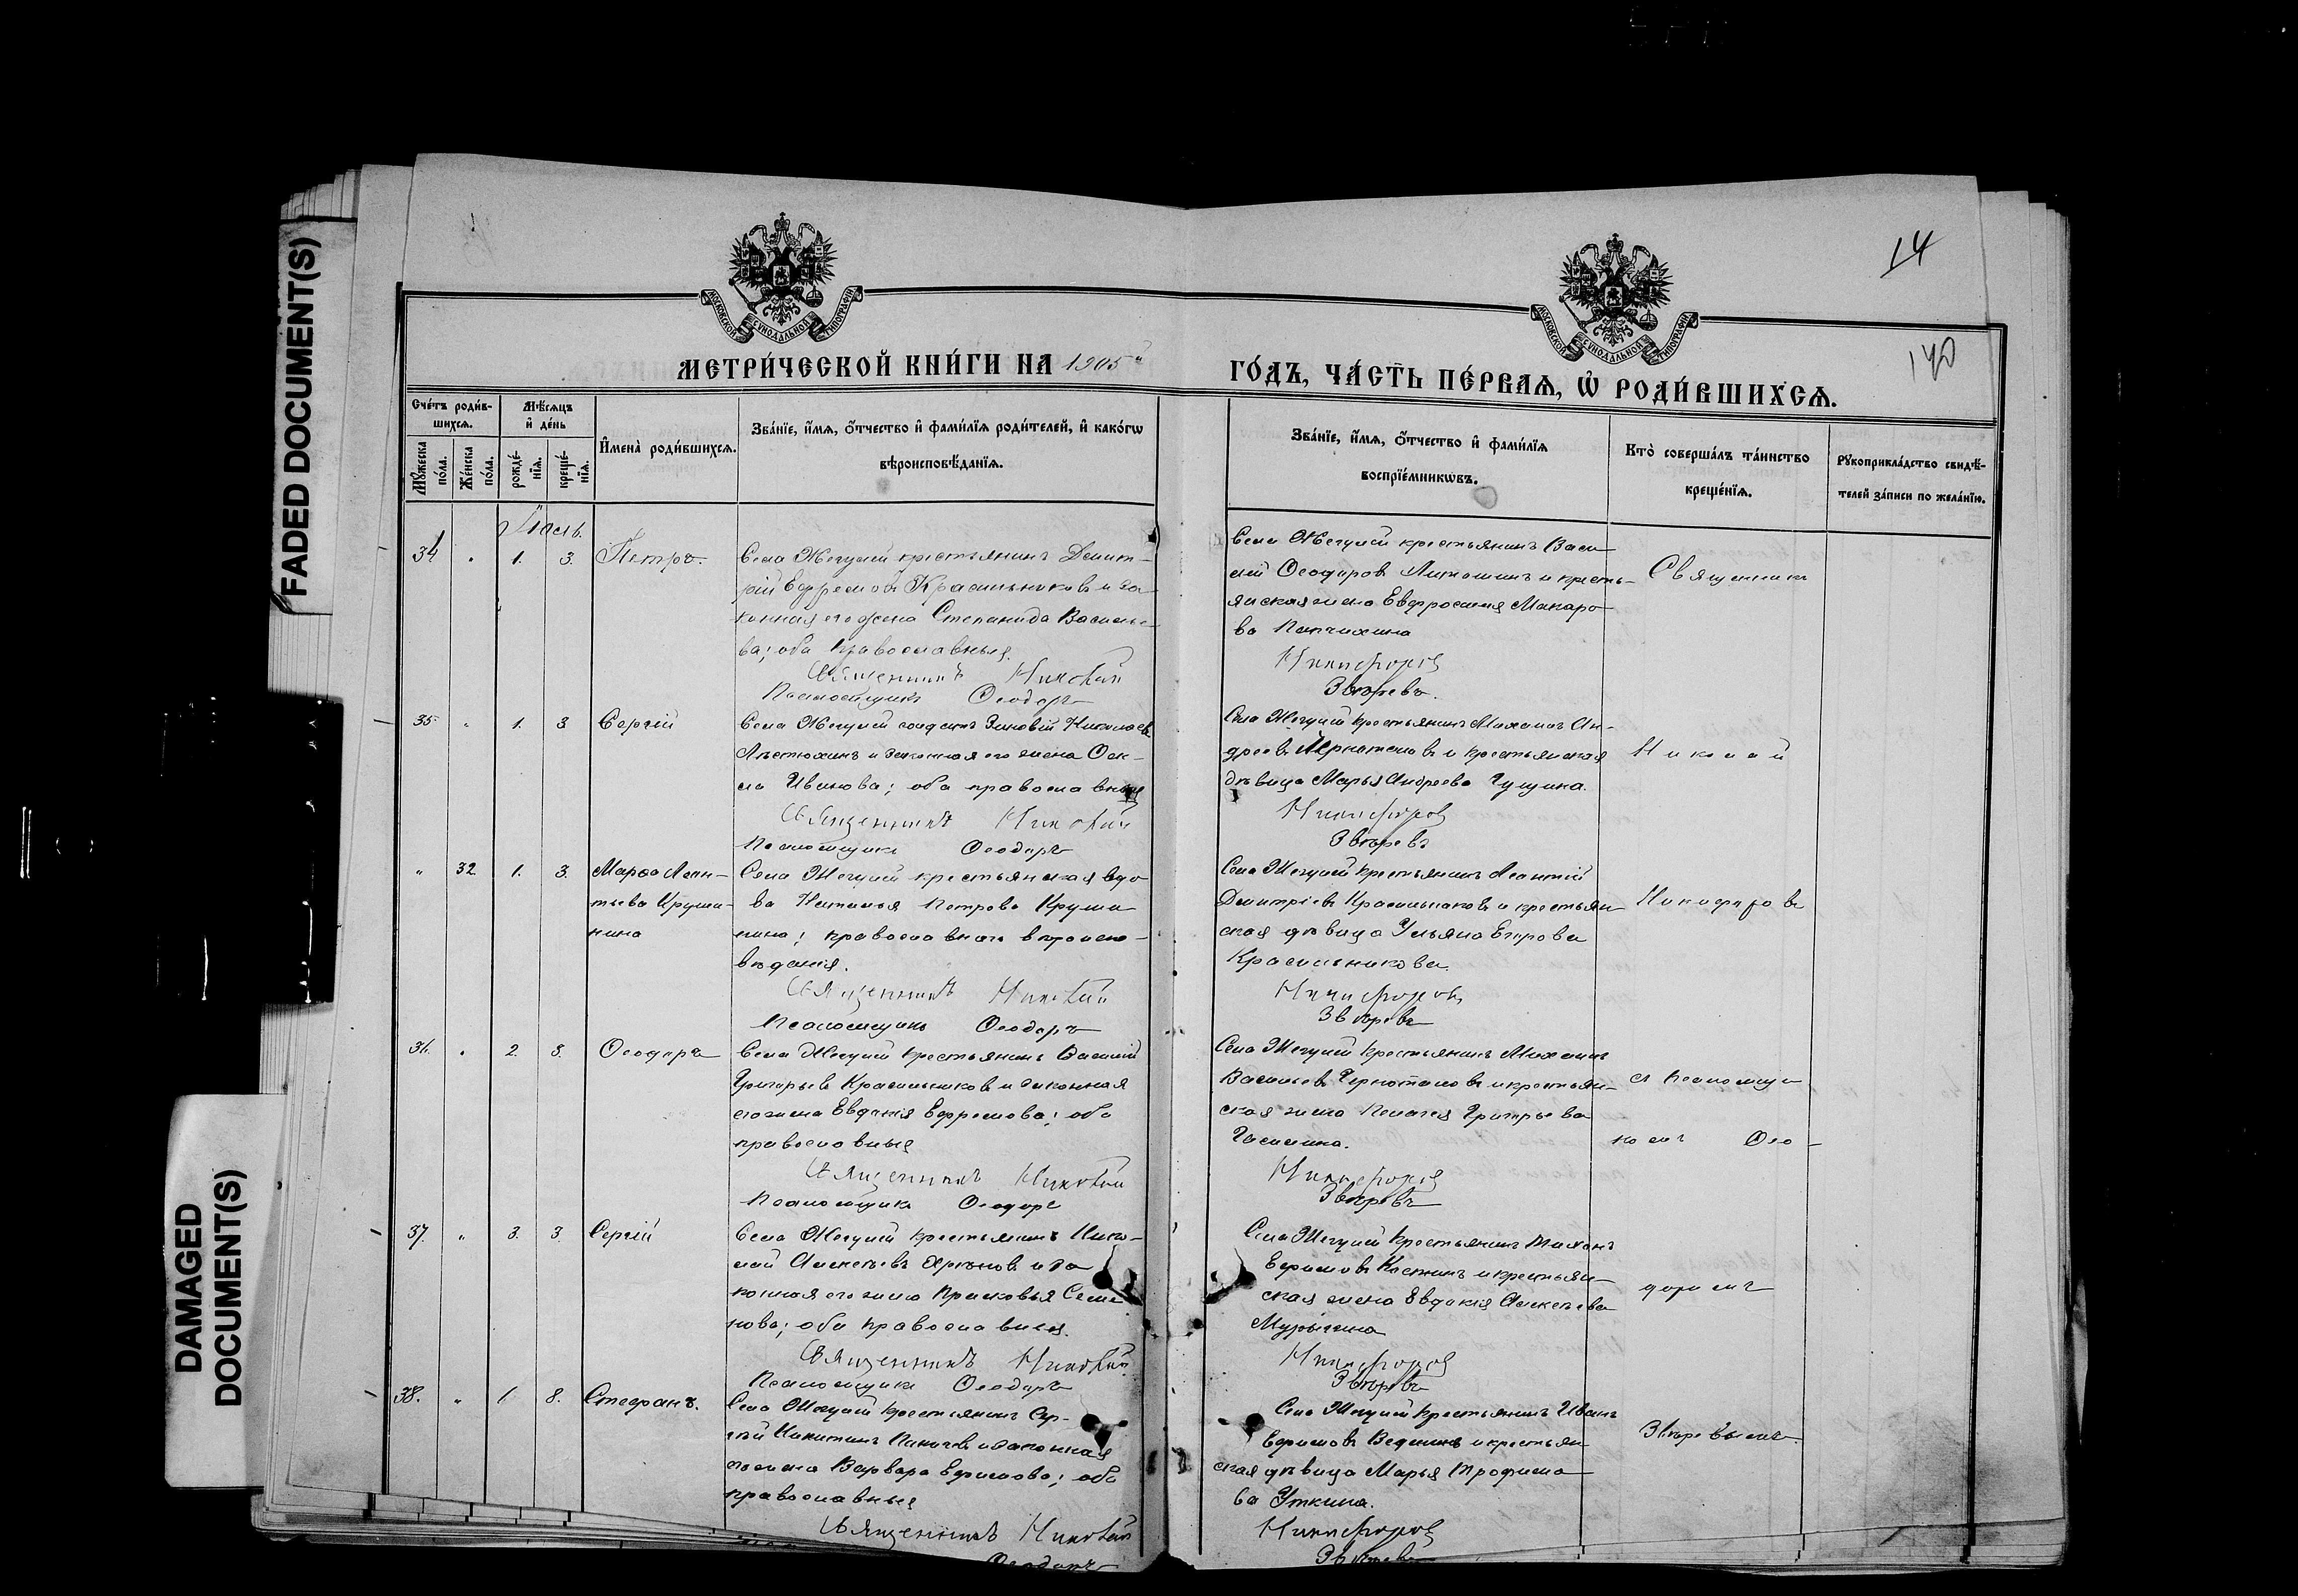 FADED DOCUMENT(S)
DAMAGED
DOCUMENT(S)
14
140
МОСКОВСКОЙ СѴНОДАЛЬНОЙ ТИПОГРАФІИ
МОСКОВСКОЙ СѴНОДАЛЬНОЙ ТИПОГРАФІИ
МЕТРИ́ЧЕСКОЙ КНИ́ГИ НА 1905й
ГО́ДЪ, ЧА́СТЬ ПЕ́РВАѦ, Ѽ РОДИ́ВШИХСѦ.
Сче́тъ роди́в-
шихсѧ.
Мꙋ́жеска по́ла.
Же́нска по́ла.
Мѣ́сѧцъ
и҆ де́нь
рожде́-
нїѧ.
креще́-
нїѧ.
И҆мена̀ роди́вшихсѧ.
Зва́нїе, и҆́мѧ, ѻ҆́тчество и҆ фами́лїѧ роди́телей, и҆ како́гѡ
вѣроисповѣ́данїѧ.
Зва́нїе, и҆́мѧ, ѻ҆́тчество и҆ фами́лїѧ
воспрїе́мникѡвъ.
Кто̀ соверша́лъ та́инство
креще́нїѧ.
Рꙋкоприкла́дство свидѣ́-
телей за́писи по жела́нїю.
Іюль.
34 " 1. 3. Петръ.
Села Жегулей крестьянинъ Димит-
рій Ефремовъ Красильниковъ и за-
конная его жена Степанида Василье-
ва; оба православныя.
Священникъ Николай
Псаломщикъ Ѳеодоръ
Села Жегулей крестьянинъ Васи-
лій Ѳеодоровъ и кресть-
янская жена Евфросинія Макаро-
ва
Никифоров
Звѣревъ.
Священникъ
35. " 1. 3 Сергій
Села Жегулей солдатъ Зиновій Николаевъ
и законная его жена Ѳек-
ла Иванова; оба православныя
Священникъ Николай
Псаломщикъ Ѳеодоръ
Села Жегулей крестьянинъ Михаилъ Ан-
дреевъ и крестьянская
дѣвица Марья Андреева Гущина.
Никифоров
Звѣревъ
Николай
" 32 1. 3. Марѳа Леон-
тьева Круши-
нина
Села Жегулей крестьянская вдо-
ва Наталья Петрова Круши-
нина; православнаго вѣроиспо-
вѣданія.
Священникъ Николай
Псаломщикъ Ѳеодоръ
Села Жегулей крестьянинъ Леонтій
Димитріевъ Красильниковъ и крестьян-
ская дѣвица Ульяна Егорова
Красильникова.
Никифоровъ
Звѣревъ
Никифоровъ
36. " 2. 3. Ѳеодоръ
Села Жегулей крестьянинъ Василій
Григорьевъ Красильниковъ и законная
его жена Евдокія Ефремова; оба
православныя
Священникъ Николай
Псаломщикъ Ѳеодоръ
Села Жегулей крестьянинъ Михаилъ
Васильевъ и крестьян-
ская жена Пелагея Григорьева
Никифоров
Звѣревъ
съ псаломщи-
комъ Ѳео-
37. " 3. 3. Сергій
Села Жегулей крестьянинъ Нико-
лай Алексѣевъ и за-
конная его жена Прасковья Семе-
нова; оба православныя.
Священникъ Николай
Псаломщикъ Ѳеодоръ
Села Жегулей крестьянинъ
Ефимовъ и крестьян-
ская жена Евдокія Алексѣева
Никифоров
Звѣревъ
доромъ
38. " 8. Стефанъ.
Села Жегулей крестьянинъ Сер-
гѣй Никитинъ и законная
его жена Варвара Ефимова; оба
православныя
Священникъ Николай
Ѳеодоръ
Села Жегулей крестьянинъ Иванъ
Ефимовъ и крестьян-
ская дѣвица Марья Трофимо-
ва Уткина.
Никифоров
Звѣревъ
Звѣревымъ.